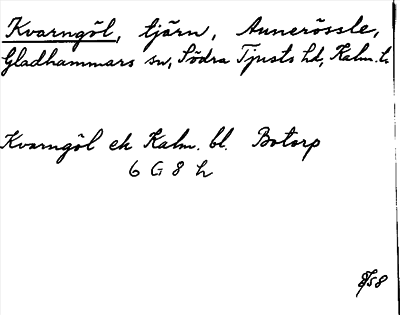 Kvarngöl, tjärn, Aunerössle,
Gladhammars sn, Södra Tjusts hd, Kalm. l.
Kvarngöl ek Kalm. bl. Botorp
6 G 8 h